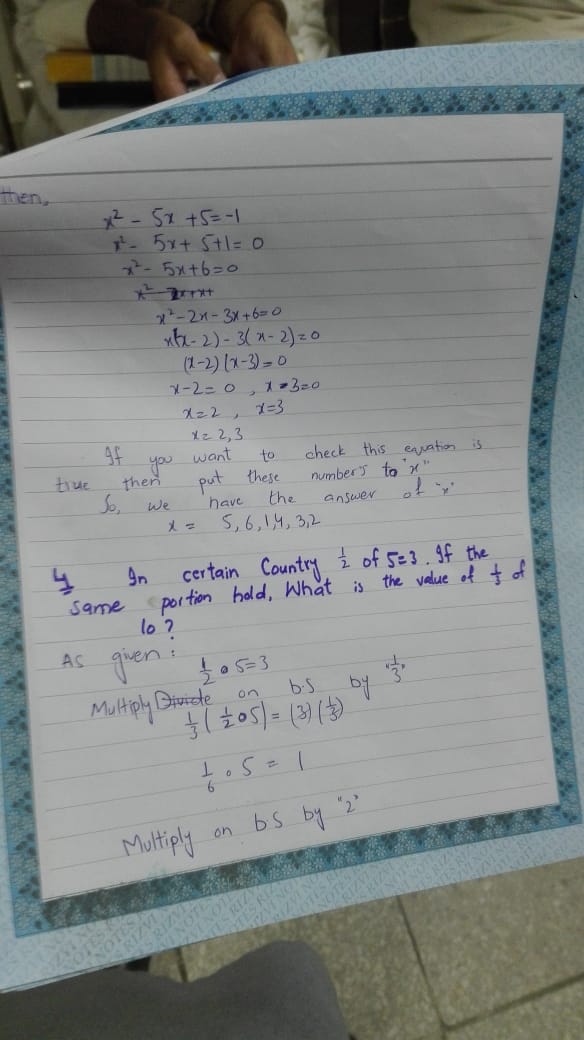 then,
x² - 5x + 5 = -1
x² - 5x + 5+1 = 0
x² - 5x + 6 = 0
x² - 2x - 3x + 6 = 0
x(x - 2) - 3(x - 2) = 0
(x-2) (x-3) = 0
x-2 = 0 , x-3=0
x = 2 , x=3
x = 2,3
If you want to check this equation is
true then put these numbers to "x"
So, we have the answer of "x"
x = 5, 6, 1, 4, 3, 2
4 In certain Country ½ of 5=3. If the
same portion hold, What is the value of ⅓ of
10?
As given:
½ • 5 = 3
Multiply Divide on b.s by "⅓"
⅓ (½ • 5) = (3) (⅓)
1/6 • 5 = 1
Multiply on b.s by "2"